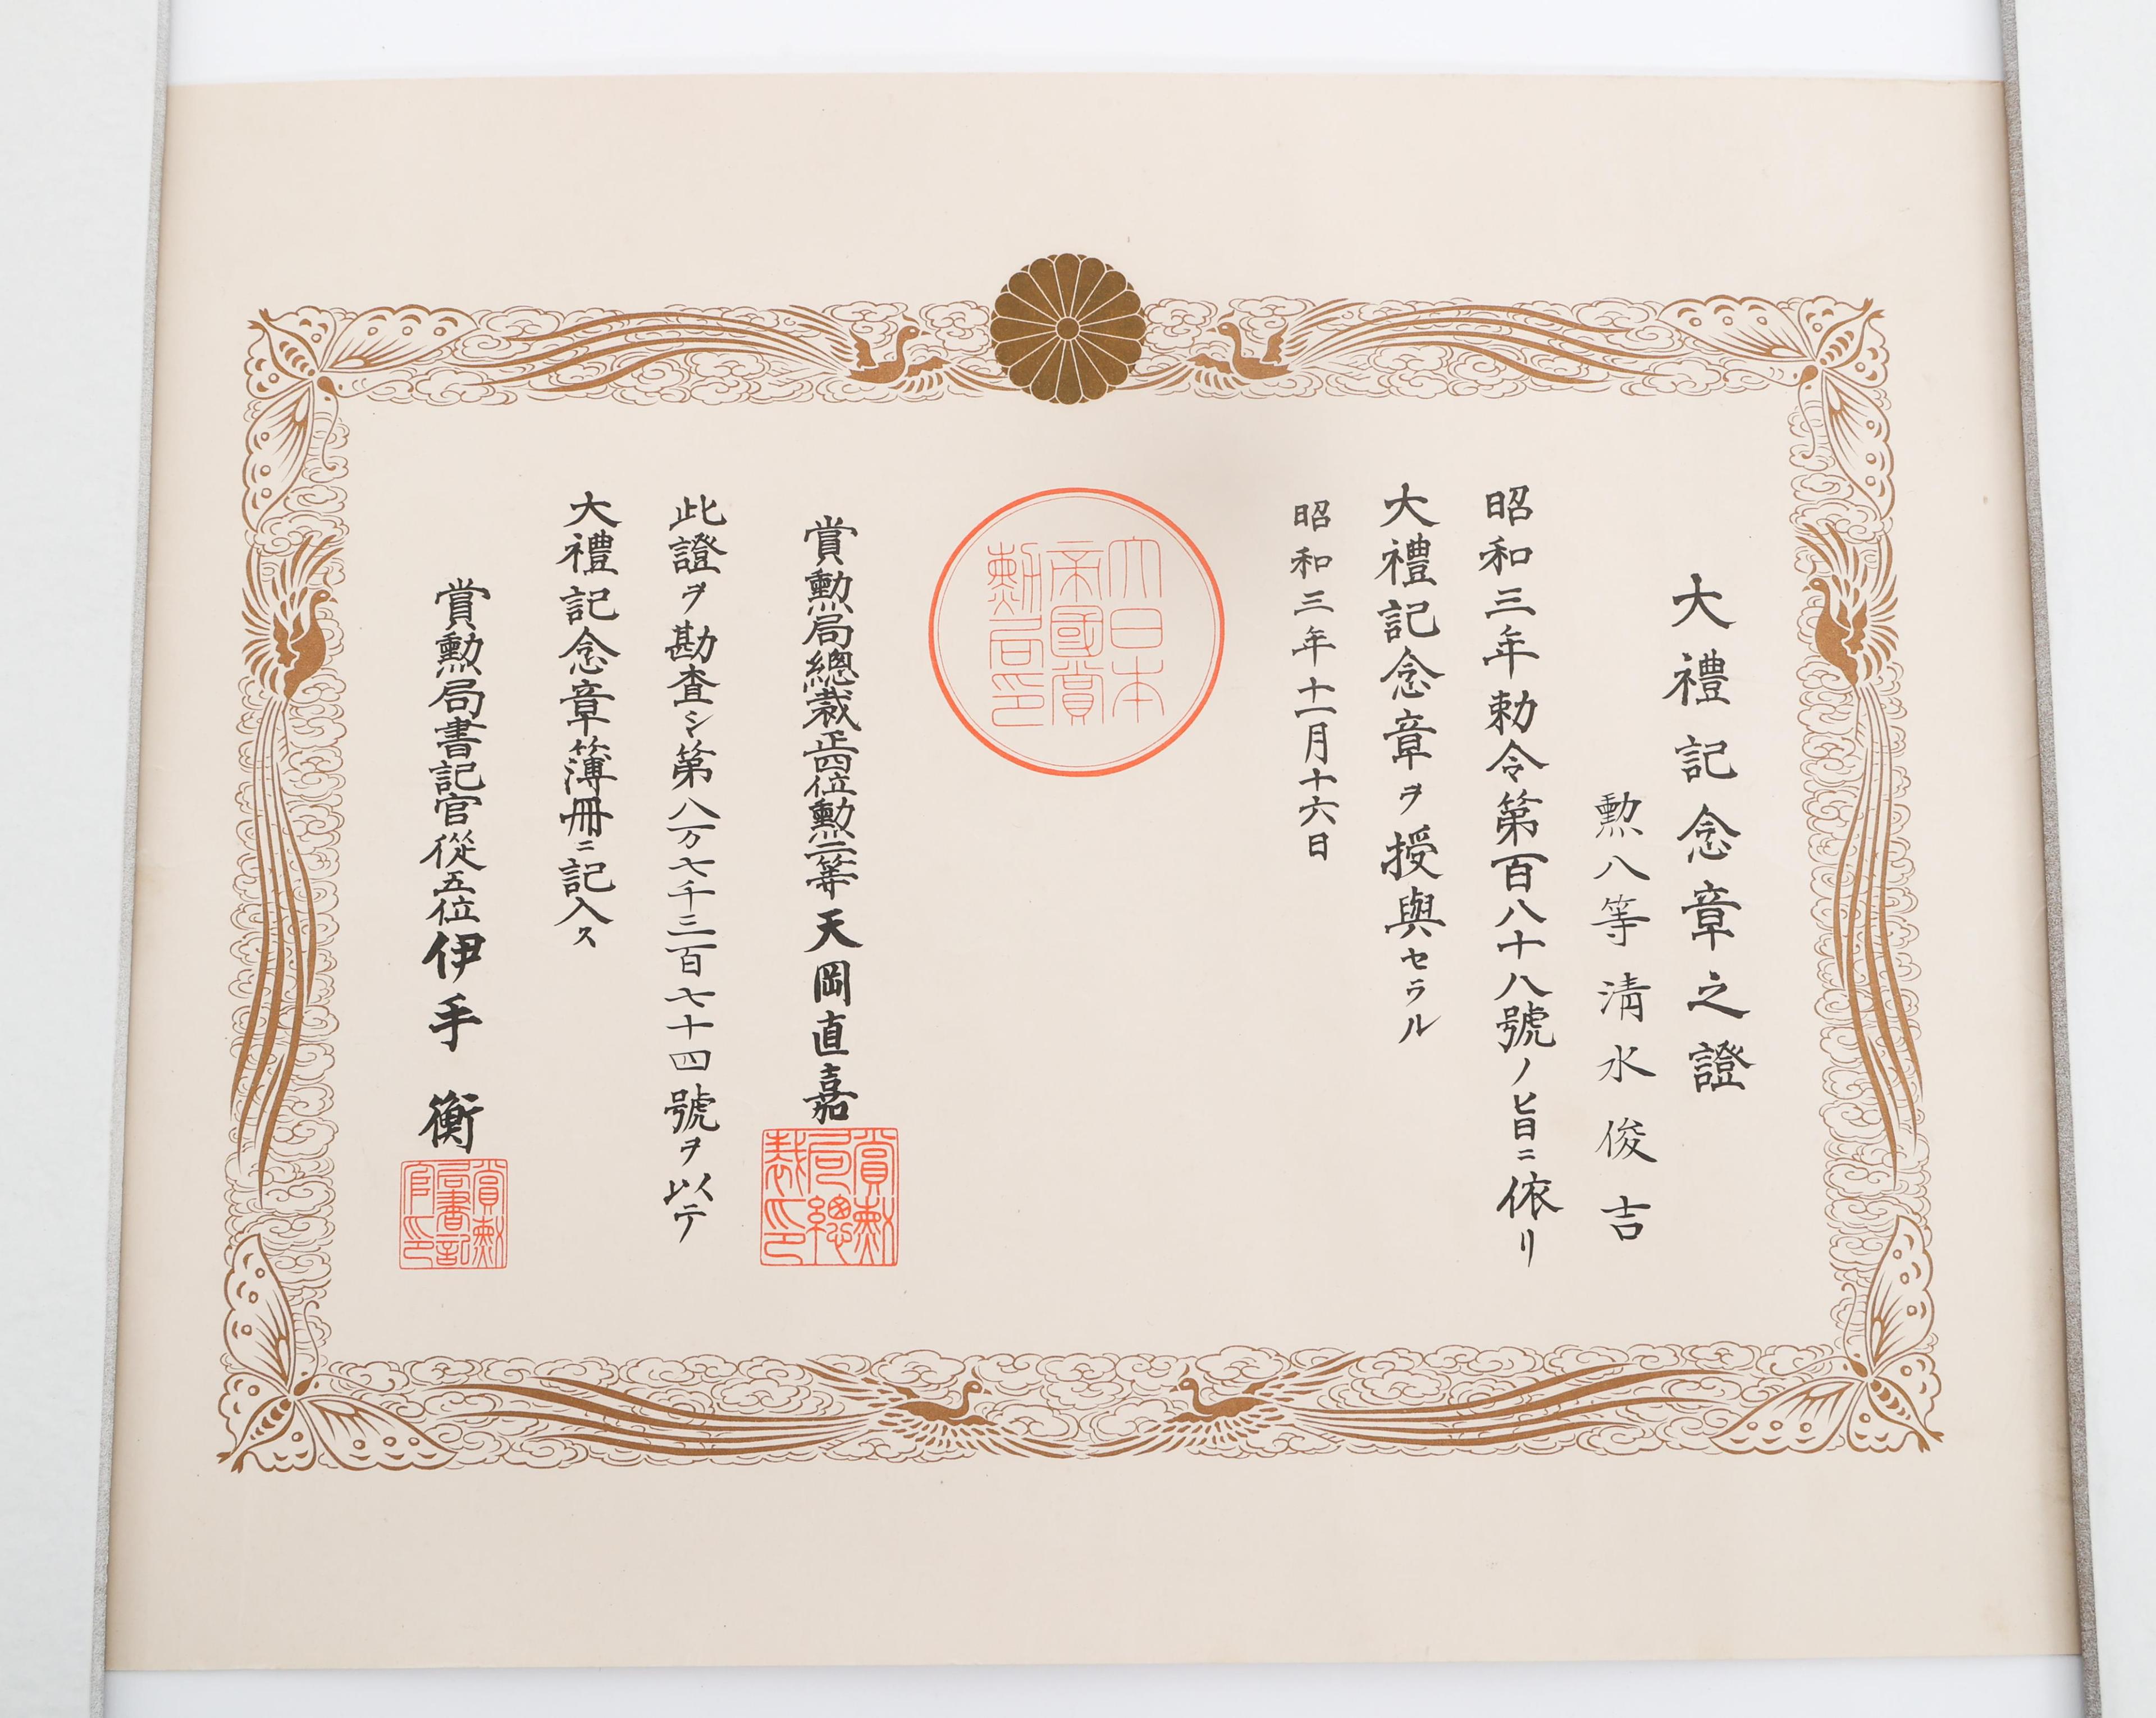 大禮記念章之證
勲八等清水俊吉
昭和三年勅令第百八十八號ノ旨ニ依リ
大禮記念章ヲ授與セラル
昭和三年十一月十六日
大日本
帝國賞
勲局印
賞勲局總裁正四位勲二等天岡直嘉
賞勲
局總
裁印
此證ヲ勘査シ第八万七千三百七十四號ヲ以テ
大禮記念章簿冊ニ記入ス
賞勲局書記官從五位伊手衡
賞勲
局書記
官印